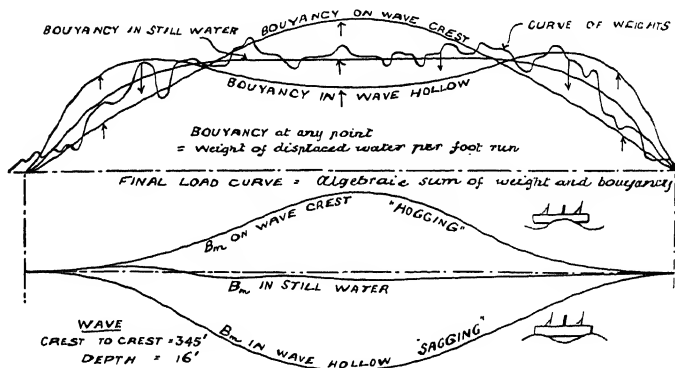 BOUYANCY ON WAVE CREST
BOUYANCY IN STILL WATER
CURVE OF WEIGHTS
BOUYANCY IN WAVE HOLLOW
BOUYANCY at any point
= Weight of displaced water per foot run
FINAL LOAD CURVE = Algebraic sum of weight and bouyancy
Bm ON WAVE CREST
"HOGGING"
Bm IN STILL WATER
Bm IN WAVE HOLLOW
"SAGGING"
WAVE
CREST TO CREST = 345'
DEPTH = 16'